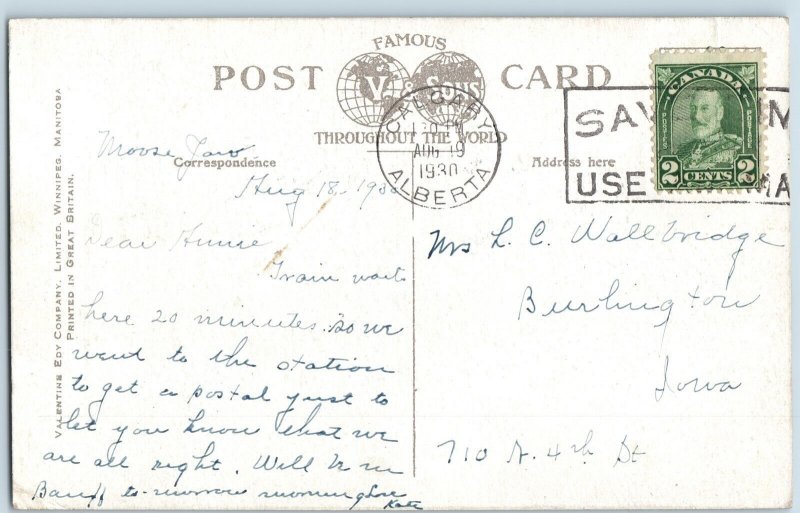 FAMOUS
POST CARD
V & SONS
THROUGHOUT THE WORLD
VALENTINE EDY COMPANY, LIMITED. WINNIPEG, MANITOBA
PRINTED IN GREAT BRITAIN.
Correspondence
Address here
CALGARY
AUG 19
1930
ALBERTA
SAV
USE
CANADA
POSTES POSTAGE
2 CENTS 2
Moose Jaw
Aug 18 - 1930
Dear Annie
Train waits
here 20 minutes. So we
went to the station
to get a postal just to
let you know that we
are all right. Will be in
Banff to-morrow morning Love
Kate
Mrs L. C. Wallbridge
Burlington
Iowa
710 N. 4th St